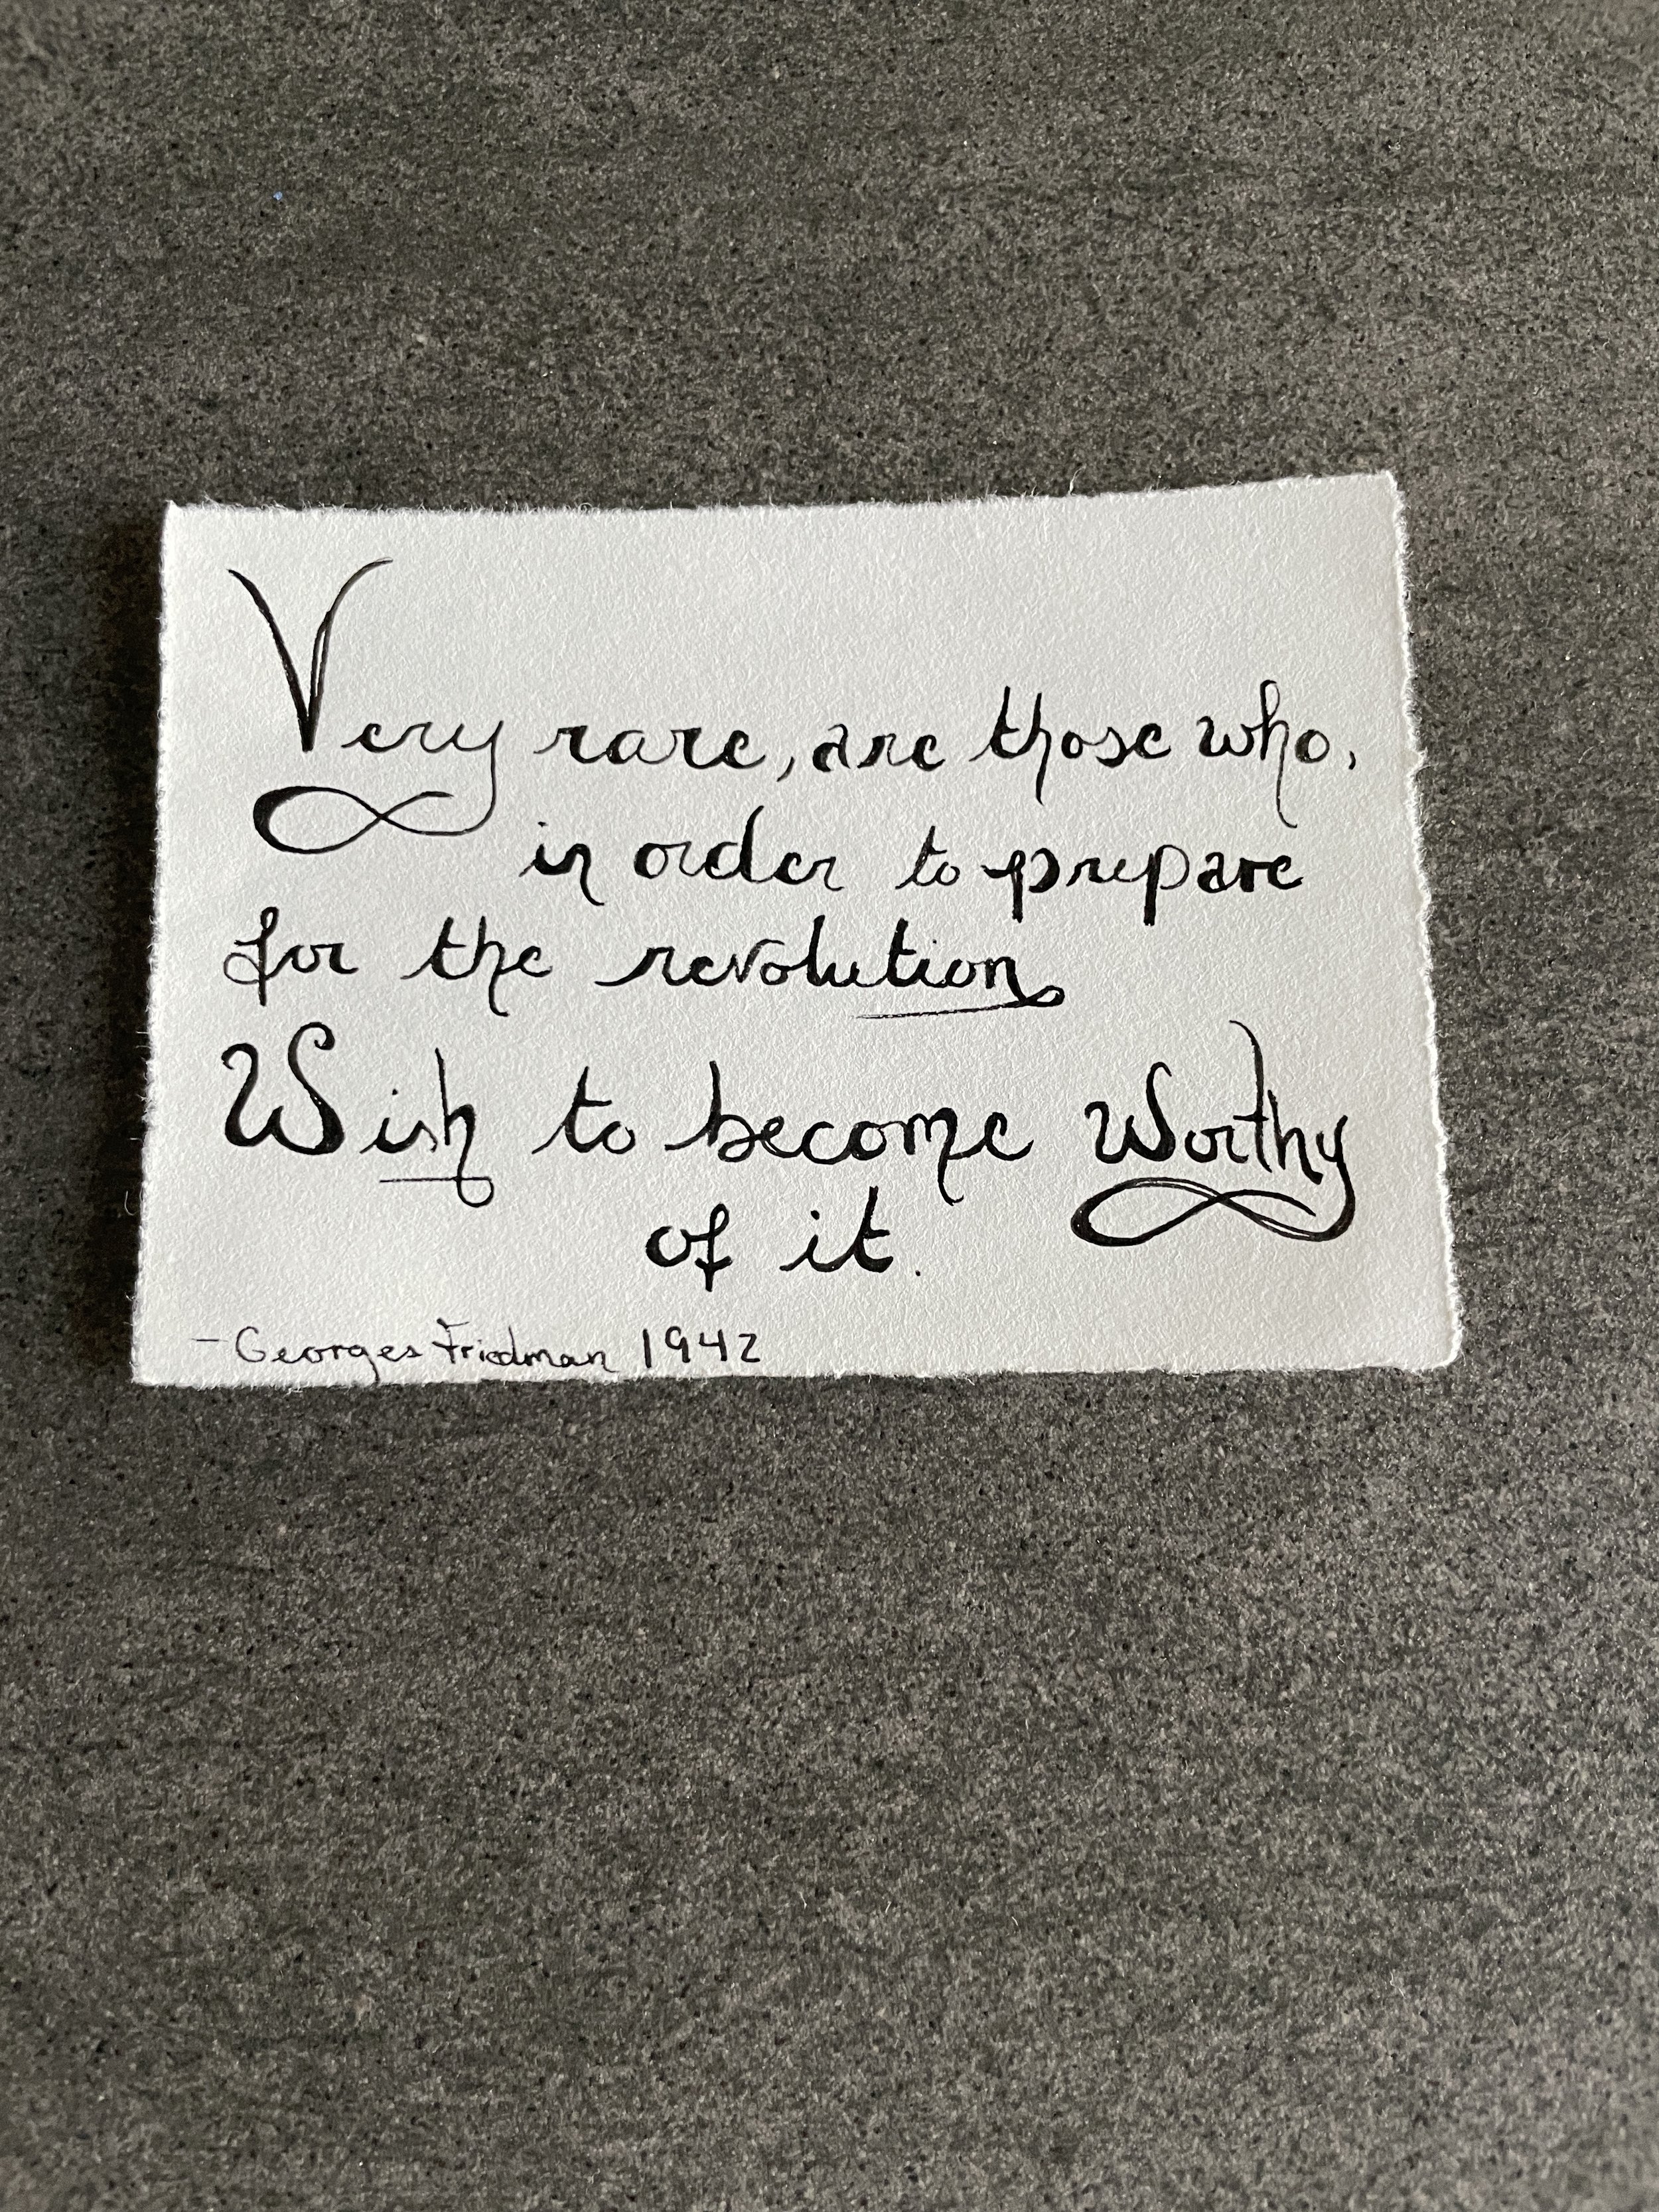 Very rare, are those who,
in order to prepare
for the revolution
Wish to become Worthy
of it.
- Georges Friedman 1942